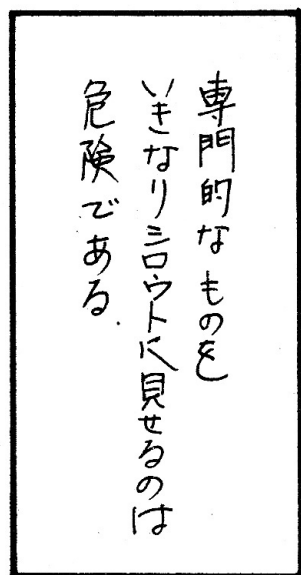 専門的なものを
いきなりシロウトに見せるのは
危険である.